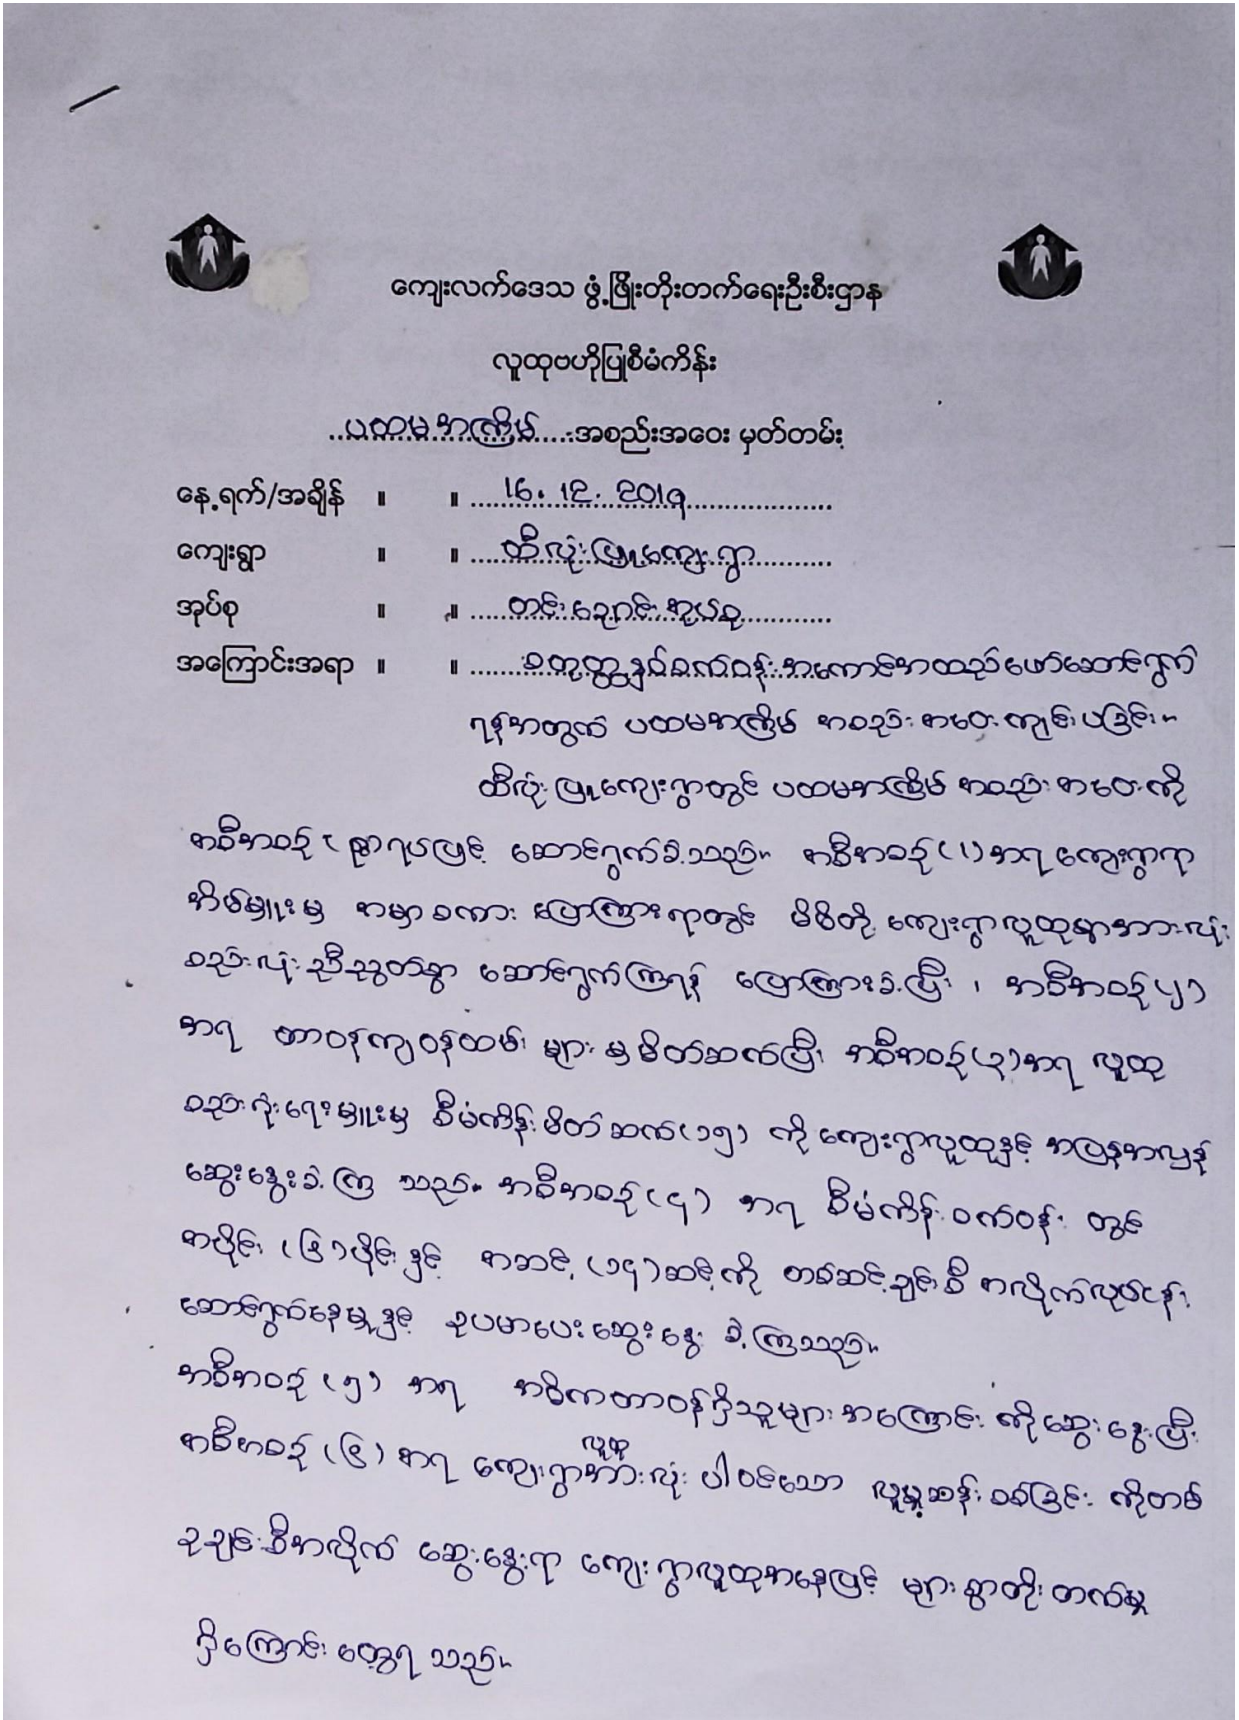 ကျေးလက်ဒေသ ဖွံ့ဖြိုးတိုးတက်ရေးဦးစီးဌာန
လူထုဗဟိုပြုစီမံကိန်း
ပထမအကြိမ် အစည်းအဝေး မှတ်တမ်း
နေ့ရက်/အချိန် ။ ။ 16.12.2019
ကျေးရွာ ။ ။ ထီးလုံးဖြူကျေးရွာ
အုပ်စု ။ ။ တင်းချောင်းအုပ်စု
အကြောင်းအရာ ။ ။ စတုတ္ထနှစ်စက်ဝန်းအကောင်အထည်ဖော်ဆောင်ရွက်
ရန်အတွက် ပထမအကြိမ် အစည်းအဝေးကျင်းပခြင်း။
ထီးလုံးဖြူကျေးရွာတွင် ပထမအကြိမ် အစည်းအဝေးကို
အစီအစဉ် ( ၉)ရပ်ဖြင့် ဆောင်ရွက်ခဲ့သည်။ အစီအစဉ်(၁)အရ ကျေးရွာရာ
အိမ်မှူးမှ အမှာစကား ပြောကြားရာတွင် မိမိတို့ ကျေးရွာလူထုများအားလုံး
စည်းလုံးညီညွတ်စွာ ဆောင်ရွက်ကြရန် ပြောကြားခဲ့ပြီး ၊ အစီအစဉ်(၂)
အရ တာဝန်ကျဝန်ထမ်း များမှမိတ်ဆက်ပြီး အစီအစဉ်(၃)အရ လူထု
စည်းရုံးရေးမှူးမှ စီမံကိန်းမိတ်ဆက်(၁၅) ကို ကျေးရွာလူထုနှင့် အပြန်အလှန်
ဆွေးနွေးခဲ့ကြ သည်။ အစီအစဉ်(၄) အရ စီမံကိန်းစက်ဝန်း တွင်
အပိုင်း (၆)ပိုင်းနှင့် အဆင့်(၁၄)ဆင့်ကို တစ်ဆင့်ချင်းစီ အလိုက်လုပ်ငန်း
ဆောင်ရွက်နေမှုနှင့် ဥပမာပေးဆွေးနွေး ခဲ့ကြသည်။
အစီအစဉ် (၅) အရ အဓိကတာဝန်ရှိသူများအကြောင်း ကိုဆွေးနွေးပြီး
အစီအစဉ် (၆) အရ ကျေးရွာလူထုအားလုံး ပါဝင်သော လူမှုဆန်းစစ်ခြင်း ကိုတစ်
ခုချင်းစီအလိုက် ဆွေးနွေးရာ ကျေးရွာလူထုအနေဖြင့် များစွာတိုးတက်မှု
ရှိကြောင်း တွေ့ရ သည်။